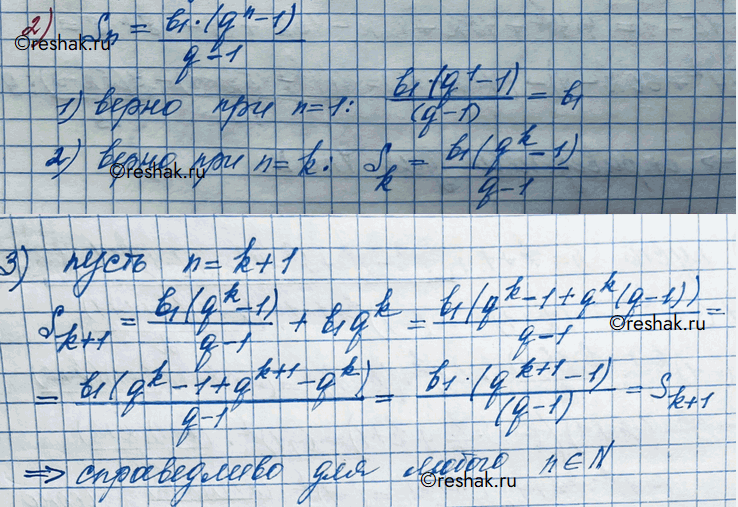 2) Sₙ = b₁·(qⁿ-1) / q-1
©reshak.ru
1) верно при n=1: b₁·(q¹-1) / (q-1) = b₁
2) верно при n=k: S_k = b₁(q^k-1) / q-1
©reshak.ru
3) пусть n=k+1
S_{k+1} = b₁(q^k-1) / q-1 + b₁q^k = b₁(q^k-1+q^k(q-1)) / q-1 =
©reshak.ru
= b₁(q^k-1+q^{k+1}-q^k) / q-1 = b₁·(q^{k+1}-1) / (q-1) = S_{k+1}
⇒ справедливо для любого n∈N
©reshak.ru